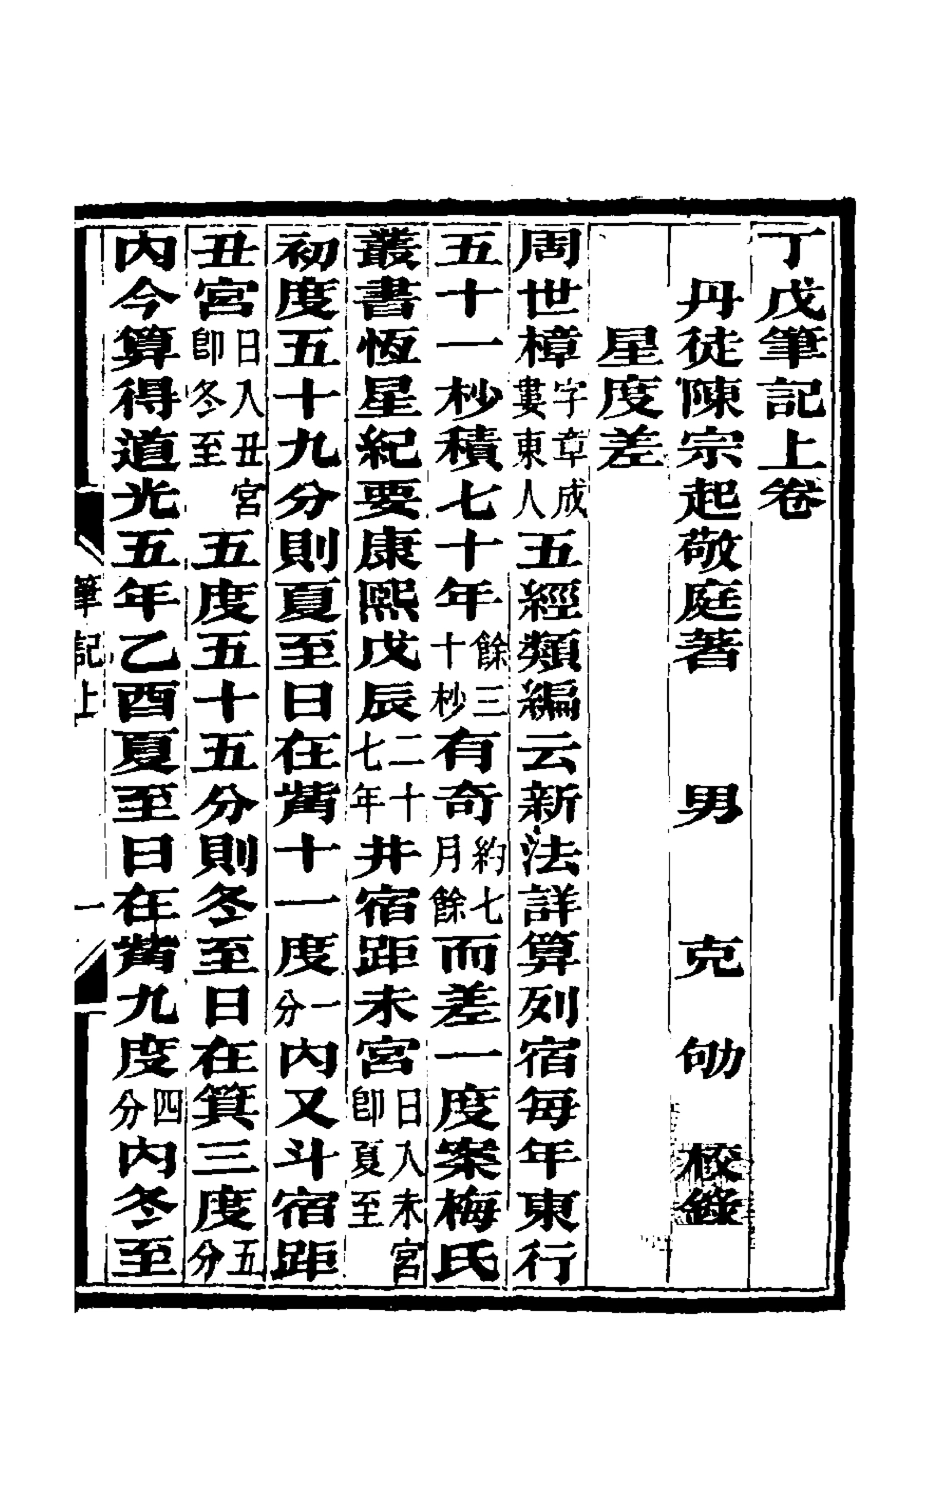 丁戊筆記上卷
丹徒陳宗起敬庭著　男　克劬　校錄
星度差
周世樟字章成婁東人五經類編云新法詳算列宿每年東行
五十一杪積七十年餘三十杪有奇約七月餘而差一度案梅氏
叢書恆星紀要康熙戊辰二十七年井宿距未宮日入未宮卽夏至
初度五十九分則夏至日在觜十一度一分內又斗宿距
丑宮日入丑宮卽冬至五度五十五分則冬至日在箕三度五分
內今算得道光五年乙酉夏至日在觜九度四分內冬至
筆記上　一